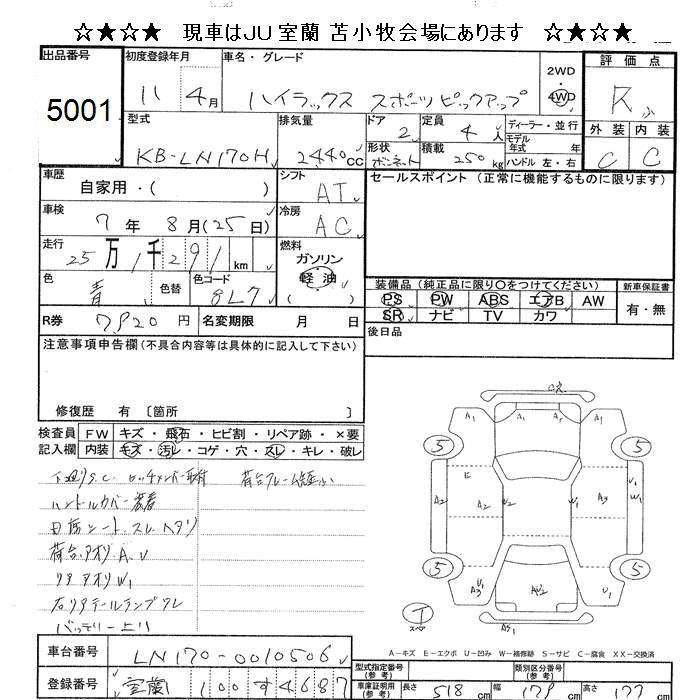 ★☆★☆★ 現車はJU室蘭 苫小牧会場にあります ★☆★☆★
出品番号 初度登録年月 車名・グレード 2WD 4WD 評価点
5001 11年 4月 ハイラックス スポーツピックアップ R
外装 内装
C C
型式 排気量 ドア 定員 ディーラー・並行
KB-LN170H 2,440cc 2 4人 モデル年式 年
形状 ボンネット 積載 250kg ハンドル 左・右
車歴 シフト セールスポイント (正常に機能するものに限ります)
自家用・( ) AT
車検 冷房
7年 8月(25日) AC
走行 燃料
25万1千291km ガソリン
軽油
( )
色 色替 色コード
青 8L7
装備品 (純正品に限り○をつけてください) 新車保証書
PS PW ABS エアB AW 有・無
SR ナビ TV カワ
R券 7,920円 名変期限 月 日
後日品
注意事項申告欄(不具合内容等は具体的に記入して下さい)
修復歴 有 〔箇所 〕
検査員 FW キズ・飛石・ヒビ割・リペア跡・×要
記入欄 内装 キズ・汚レ・コゲ・穴・スレ・キレ・破レ
ハンドルカバー装着
日焼シートスレヘタリ
荷台アオリA.U
リアアオリW1
右リアテールランプワレ
バッテリー上り
A1 A1
5 5
A2 E A2 U2 A3 U1 W1
5 5
A3 U1 AU2 U1
T
スペア
A-キズ E-エクボ U-凹み W-補修跡 S-サビ C-腐食 XX-交換済
車台番号 LN170-0010506
登録番号 室蘭 100 す 4687
型式指定番号(参考) 類別区分番号(参考)
車庫証明用(参考) 長さ 518cm 幅 179cm 高さ 177cm